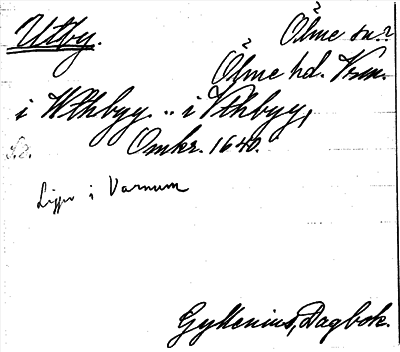 Utby. Ölme sn.?
Ölme hd. Vrm.
i Wthbyg .. i Vthbyg,
Omkr. 1640.
Ligger i Varnum
Gyllenius, Dagbok.